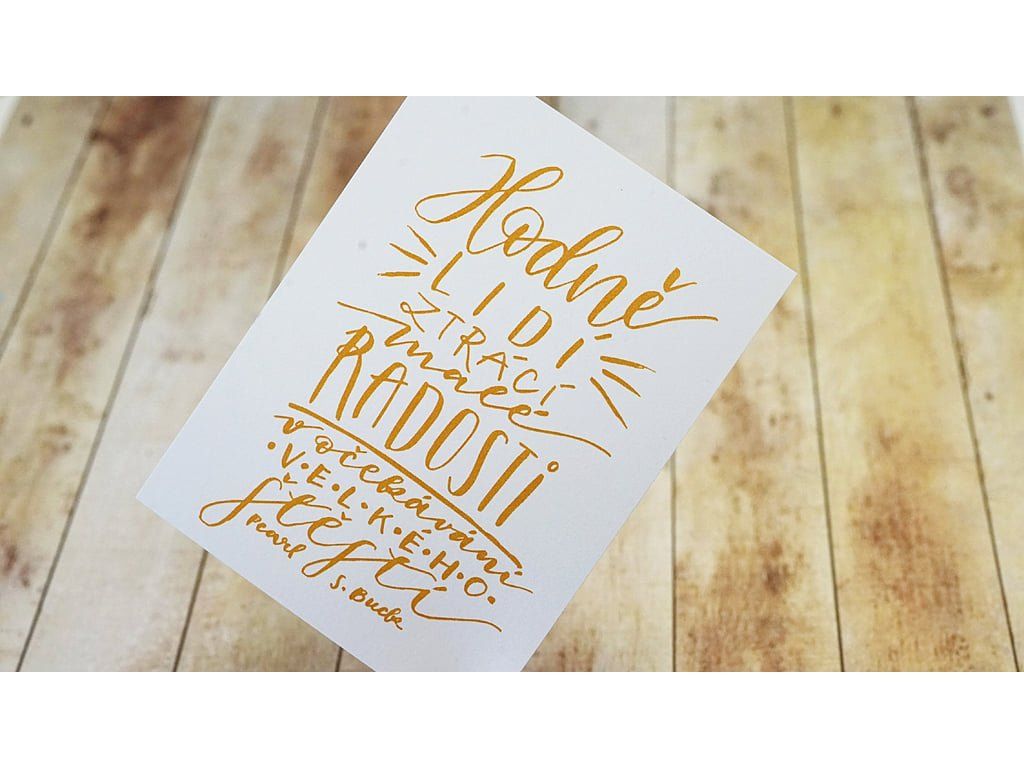 Hodně
LIDÍ
ZTRÁCÍ
malé
RADOSTi
v očekávání
·V·E·L·K·É·H·O·
štěstí
Pearl
S. Buck